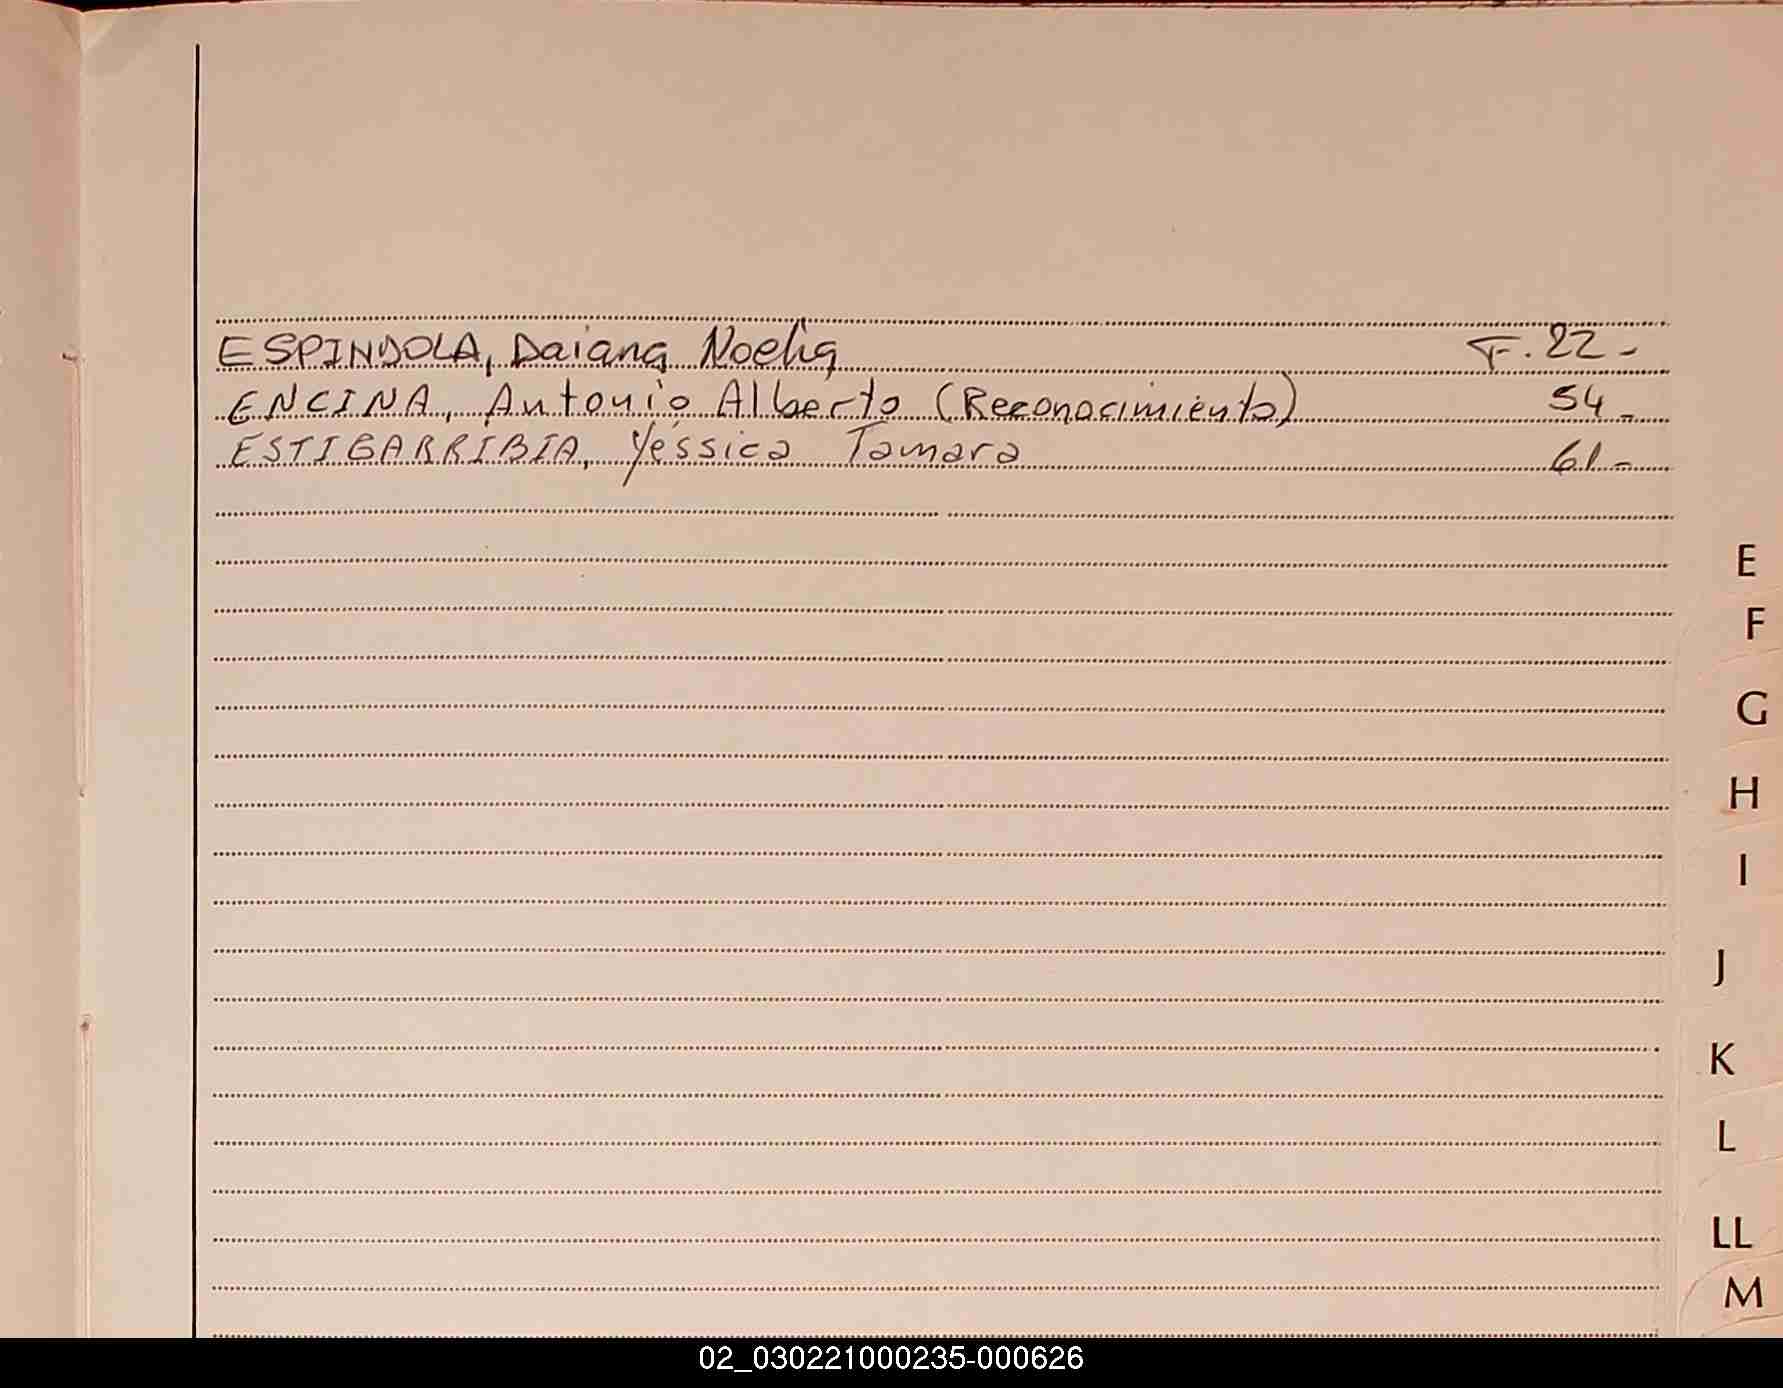 ESPINDOLA, Daiana Noelia F. 22-
ENCINA, Antonio Alberto (Reconocimiento) 54-
ESTIGARRIBIA, Yéssica Tamara 61-
E
F
G
H
I
J
K
L
LL
M
02_030221000235-000626